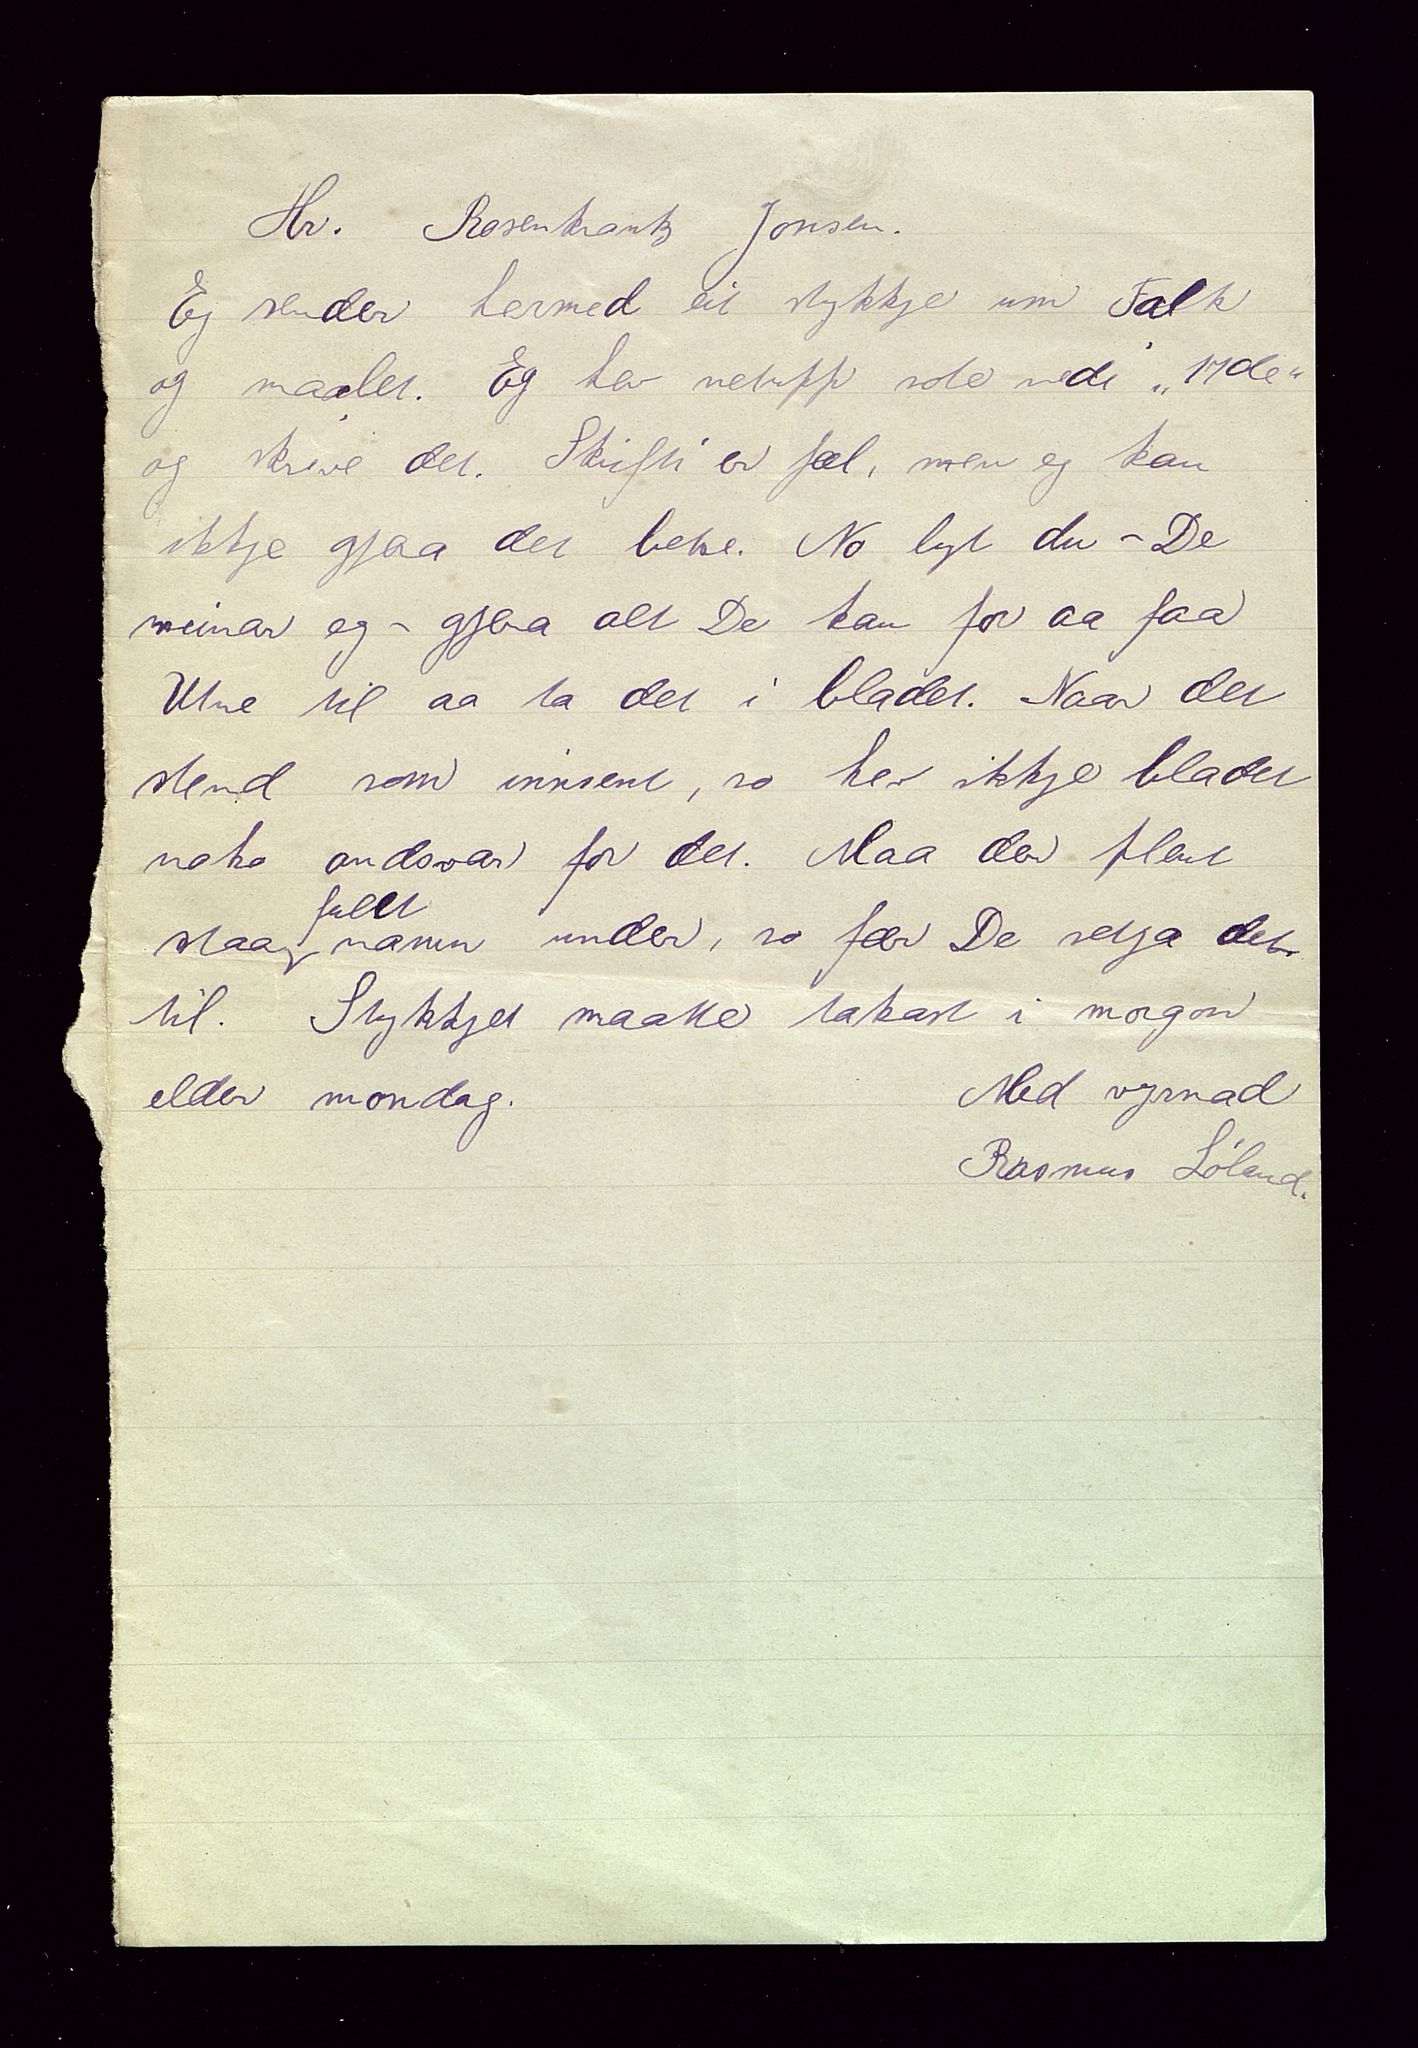 Hr. Rosenkrantz Jonsen.
Eg sender hermed eit stykkje um Falk
og maalet. Eg hev netupp sote nedi „17de“
og skrive det. Skrifti er fæl, men eg kan
ikkje gjera det betre. No lyt du – De
meinar eg – gjera alt De kan for aa faa
Utne til aa ta det i bladet. Naar det
stend som innsent, so hev ikkje bladet
noko andsvar for det. Maa der plent
staa fullt namn under, so fær De setja det
til. Stykkjet maatte takast i morgon
elder mondag. Med vyrnad
Rasmus Löland.